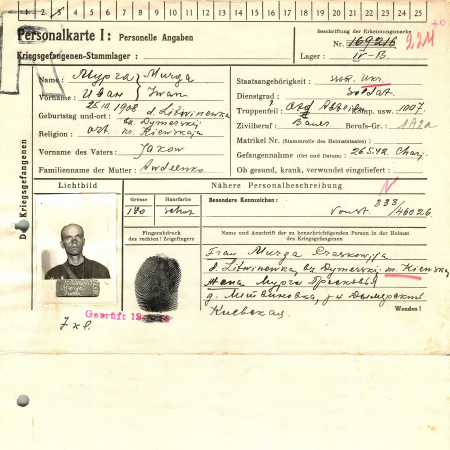 1 2 3 4 5 6 7 8 9 10 11 12 13 14 15 16 17 18 19 20 21 22 23 24 25
Personalkarte I: Personelle Angaben
Beschriftung der Erkennungsmarke
Nr. 169216
Kriegsgefangenen-Stammlager:
Lager: IV-B.
Des Kriegsgefangenen
Name: Мурга Murga
Vorname: Иван Iwan
Geburtstag und -ort: 25.10.1908 d. Litwinewka
bz. Dymerskij
Religion: ort. m. Kiewskaja
Vorname des Vaters: Jakow
Familienname der Mutter: Awdeenko
Staatsangehörigkeit: Ukr.
Dienstgrad: Soldat.
Truppenteil: Komp. usw. 1007.
Zivilberuf: Bauer Berufs-Gr.: 1A2a
Matrikel Nr. (Stammrolle des Heimatstaates):
Gefangennahme (Ort und Datum): 26.5.42. Charj.
Ob gesund, krank, verwundet eingeliefert:
Lichtbild
Nähere Personalbeschreibung
Größe
Haarfarbe
180
schw.
Besondere Kennzeichen:
N
333/46026
Fingerabdruck
des rechten ! Zeigefingers
Name und Anschrift der zu benachrichtigenden Person in der Heimat
des Kriegsgefangenen
Frau Murga Praskowja
d. Litwinewka, bz. Dymerski m. Kiewska
Жена Мурга Прасковья
д. Литвиновка, р-н Дымерский
Киевская.
Wenden !
Geprüft